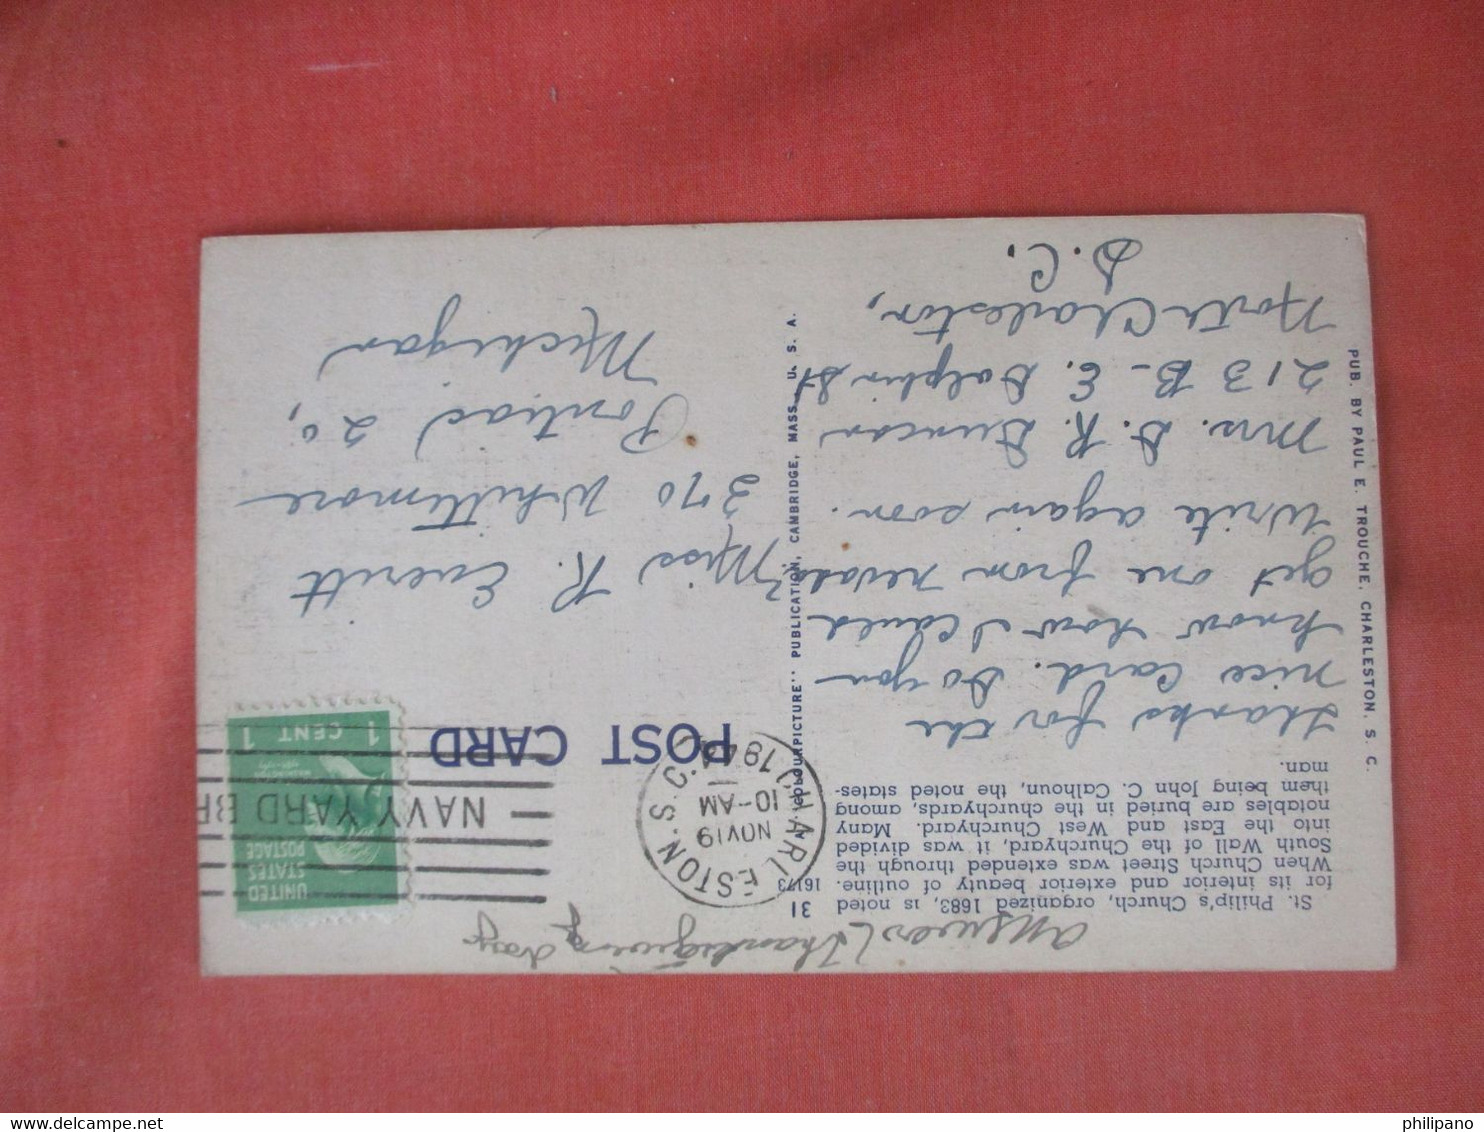 answered Thanksgiving day
St. Philip's Church, organized 1683, is noted
for its interior and exterior beauty of outline.
When Church Street was extended through the
South Wall of the Churchyard, it was divided
into the East and West Churchyard. Many
notables are buried in the churchyards, among
them being John C. Calhoun, the noted states-
man.
31
16173
Thanks for the
nice card. Do you
know how I could
get one from nevada?
Write again soon.
Mrs. D. R. Duncan
213 B - E. Dolphin St
North Charleston,
S. C.
PUB. BY PAUL E. TROUCHE, CHARLESTON, S. C.
"COLOURPICTURE" PUBLICATION, CAMBRIDGE, MASS., U. S. A.
POST CARD
CHARLESTON. S.C.
NOV 19
10-AM
NAVY YARD BR
UNITED
STATES
POSTAGE
1 CENT 1
Miss R. Everitt
370 Whittimore
Pontiac 20,
Michigan
philipano